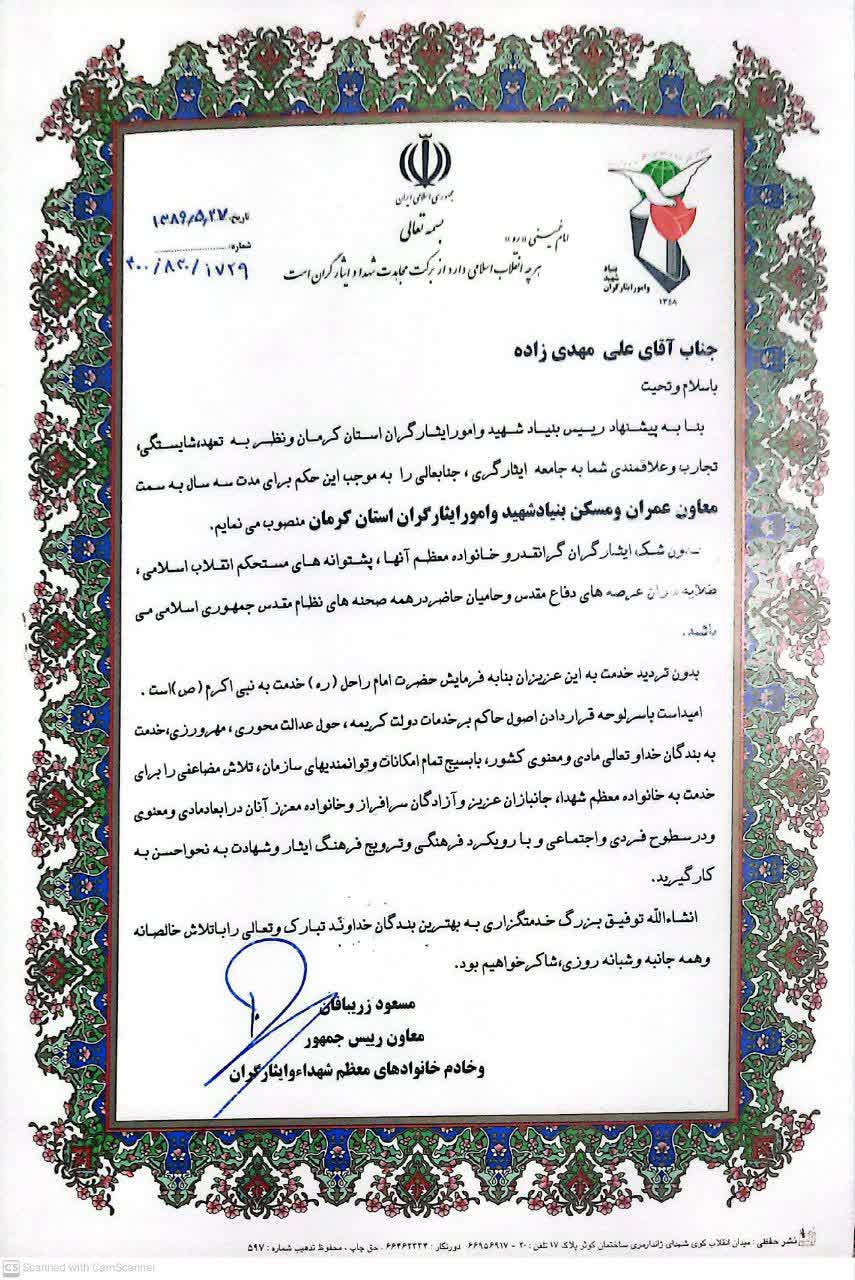 جمهوری اسلامی ایران
بسمه تعالی
تاریخ: ۱۳۸۹/۵/۲۷
شماره:
۳۰۰/۸۲۰/۱۷۲۹
امام خمینی «ره»
هرچه انقلاب اسلامی دارد از برکت مجاهدت شهدا و ایثارگران است
بنیاد
شهید
وامور ایثارگران
۱۳۵۸
جناب آقای علی مهدی زاده
باسلام وتحیت
بنا به پیشنهاد رییس بنیاد شهید وامورایثارگران استان کرمان ونظر به تعهد،شایستگی،
تجارب وعلاقمندی شما به جامعه ایثارگری ، جنابعالی را به موجب این حکم برای مدت سه سال به سمت
معاون عمران ومسکن بنیادشهید وامورایثارگران استان کرمان منصوب می نمایم.
بدون شک، ایثارگران گرانقدرو خانواده معظم آنها ، پشتوانه های مستحکم انقلاب اسلامی ،
عرصه های دفاع مقدس وحامیان حاضردرهمه صحنه های نظام مقدس جمهوری اسلامی می
باشند.
بدون تردید خدمت به این عزیزان بنابه فرمایش حضرت امام راحل (ره) خدمت به نبی اکرم (ص)است .
امیداست باسرلوحه قراردادن اصول حاکم برخدمات دولت کریمه ، حول عدالت محوری ، مهرورزی،خدمت
به بندگان خداو تعالی مادی ومعنوی کشور، بابسیج تمام امکانات وتوانمندیهای سازمان ، تلاش مضاعفی را برای
خدمت به خانواده معظم شهدا، جانبازان عزیز وآزادگان سرافراز وخانواده معزز آنان درابعادمادی ومعنوی
ودرسطوح فردی واجتماعی و با رویکرد فرهنگی وترویج فرهنگ ایثار وشهادت به نحواحسن به
کارگیرید.
انشاءالله توفیق بزرگ خدمتگزاری به بهترین بندگان خداوند تبارک وتعالی راباتلاش خالصانه
وهمه جانبه وشبانه روزی،شاکرخواهیم بود.
مسعود زریبافان
معاون رییس جمهور
وخادم خانوادهای معظم شهداءوایثارگران
نشر حفظی : میدان انقلاب کوی شهدای ژاندارمری ساختمان کوثر پلاک ۱۷ تلفن : ۲۰ - ۶۶۹۵۶۹۱۷ دورنگار : ۶۶۴۶۲۲۲۴ . حق چاپ ، محفوظ تذهیب شماره : ۵۹۷
CS Scanned with CamScanner